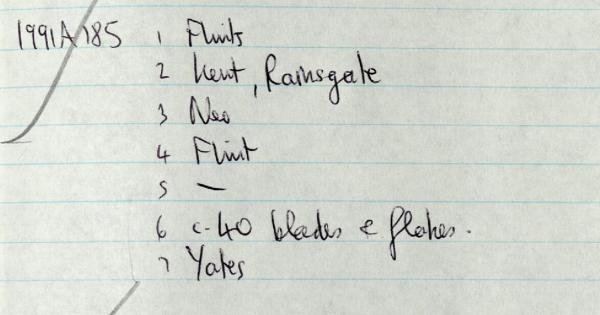 1991A185 1 Flints
2 Kent, Ramsgate
3 Neo
4 Flint
5 —
6 c. 40 blades & flakes.
7 Yates